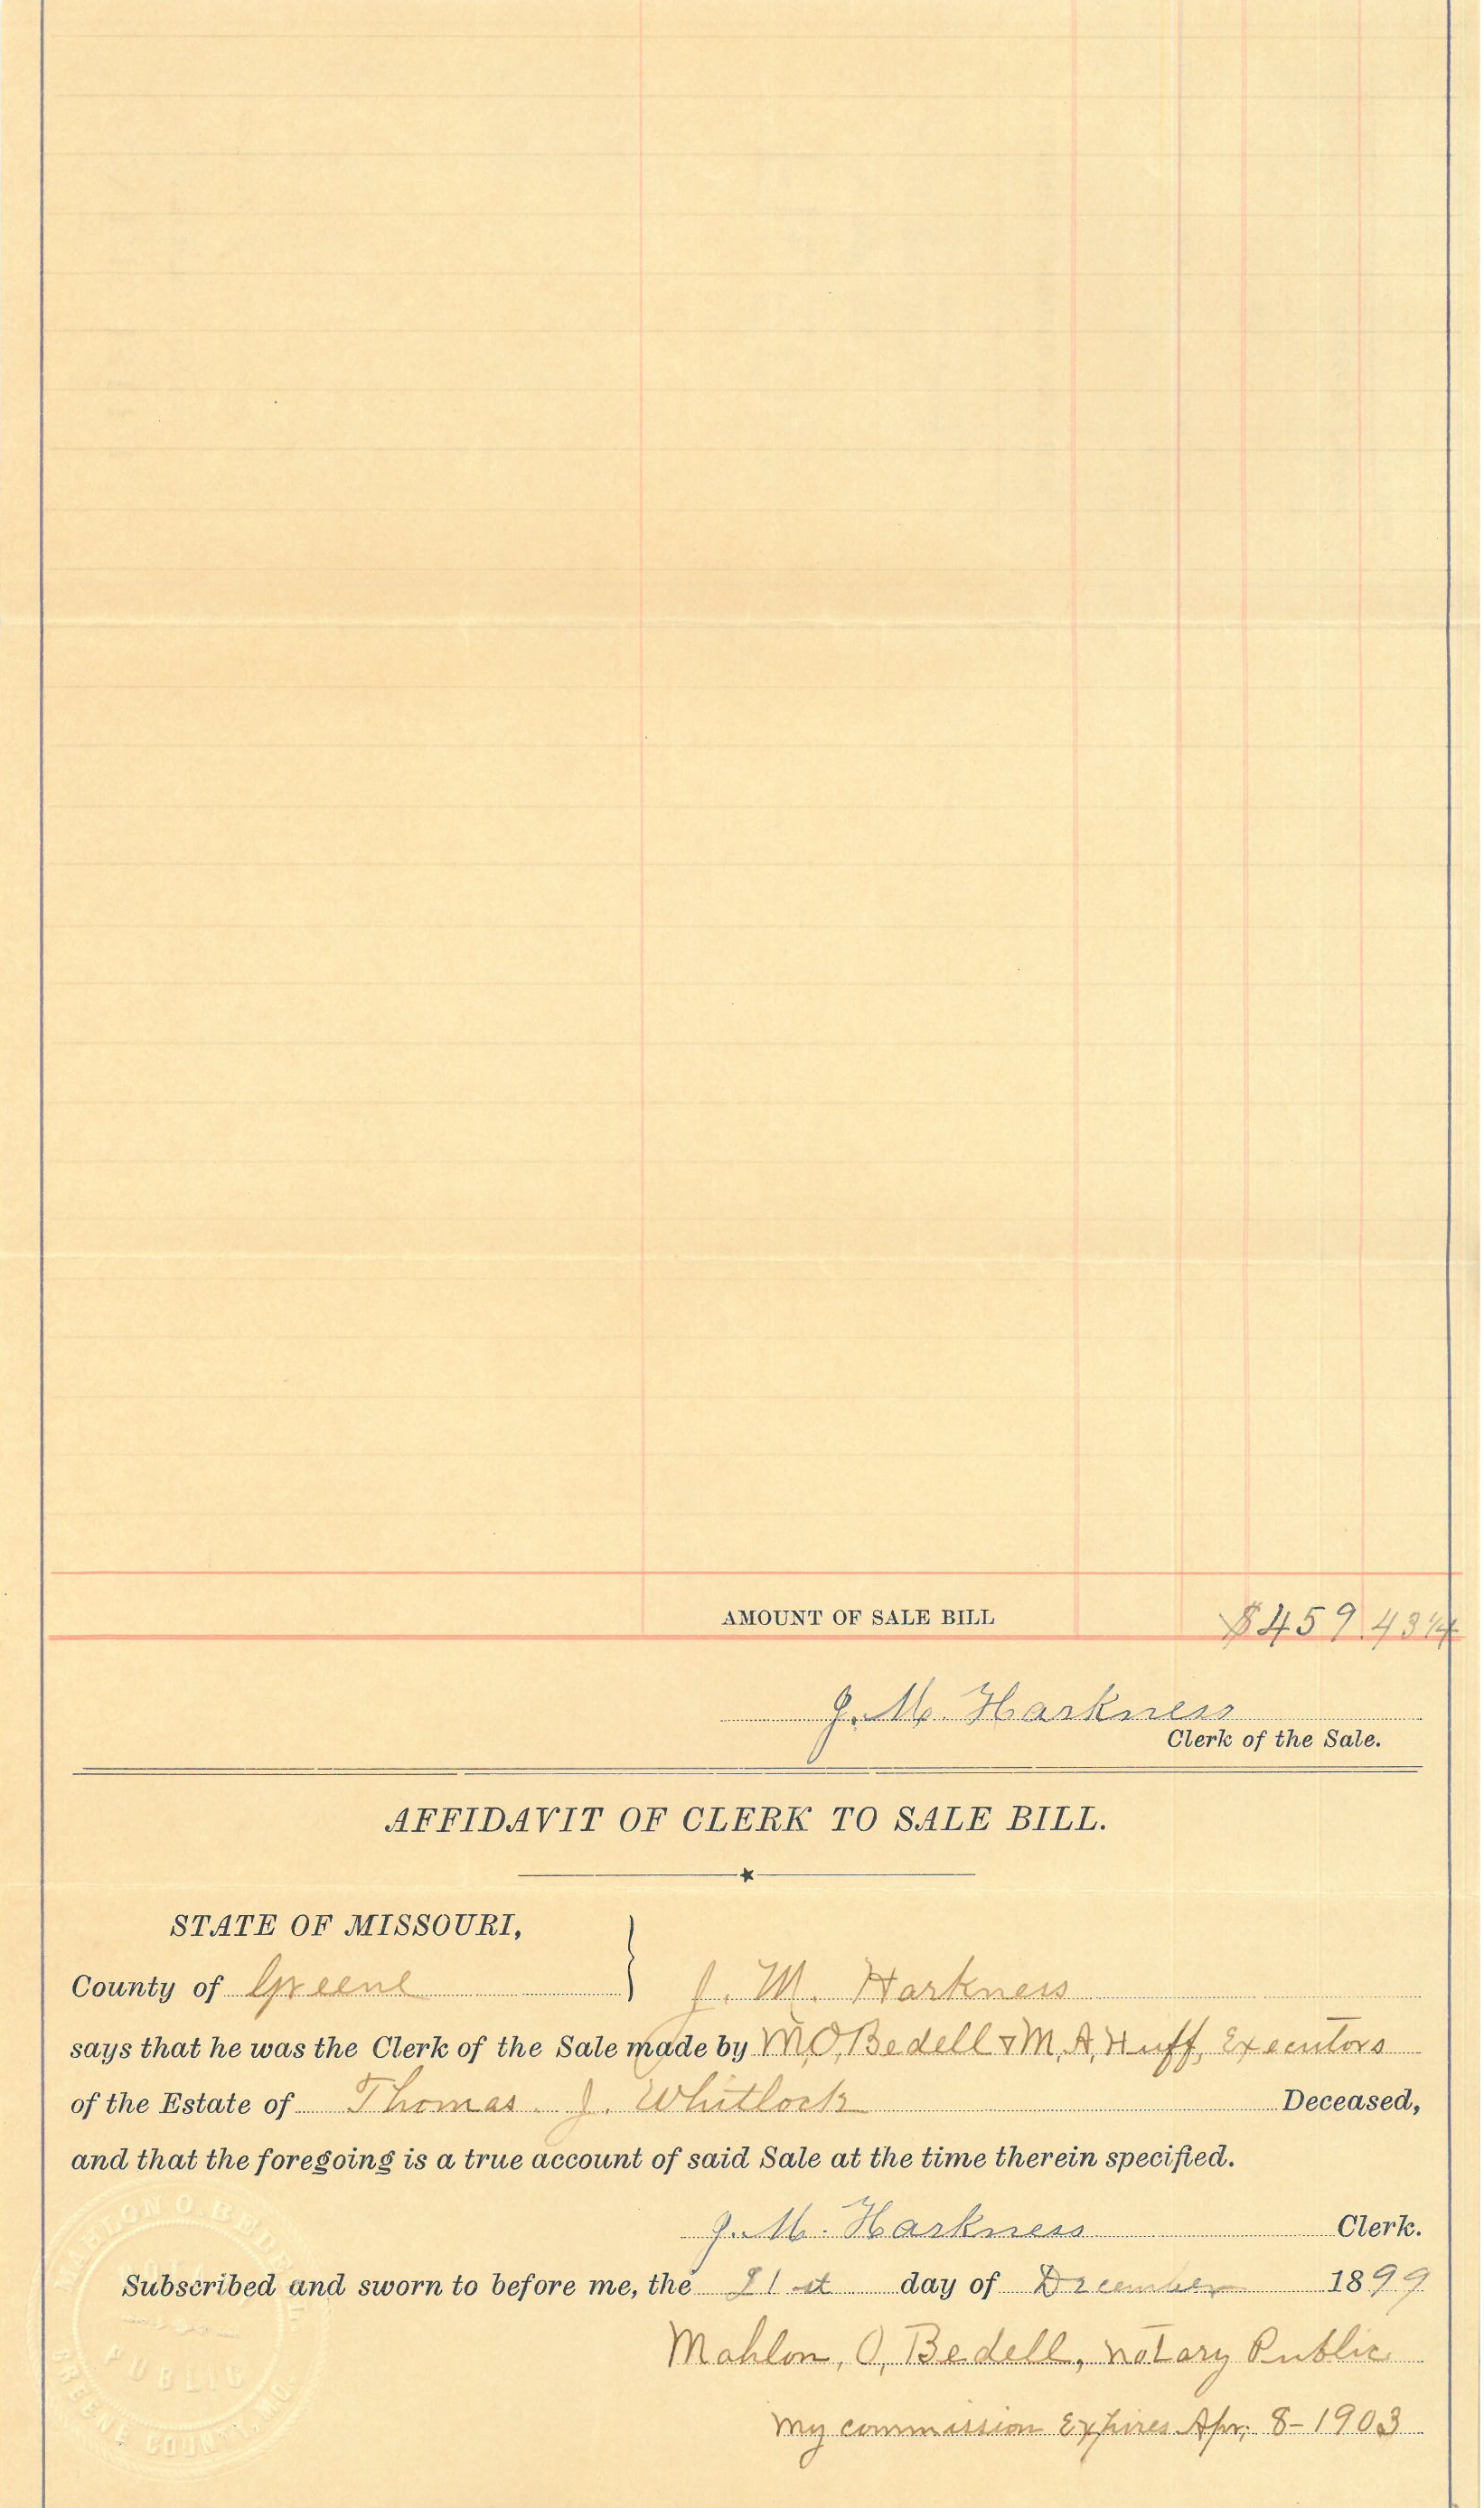 AMOUNT OF SALE BILL $459.43 1/4
J. M. Harkness
Clerk of the Sale.
AFFIDAVIT OF CLERK TO SALE BILL.
STATE OF MISSOURI,
County of Greene } J. M. Harkness
says that he was the Clerk of the Sale made by M, O, Bedell & M, A, Huff, Executors
of the Estate of Thomas. J. Whitlock Deceased,
and that the foregoing is a true account of said Sale at the time therein specified.
J. M. Harkness Clerk.
Subscribed and sworn to before me, the 21st day of December 1899
Mahlon, O, Bedell, notary Public
my commission Expires Apr, 8-1903
MAHLON O. BEDELL.
NOTARY
PUBLIC
GREENE COUNTY, MO.